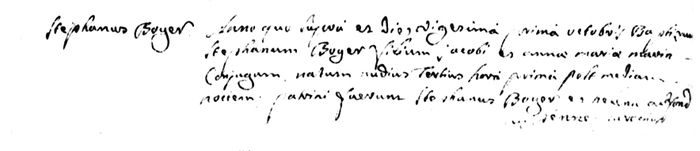 Stephanus Boyer Anno quo supra et die vigesima prima octobris Baptizavi
Stephanum Boyer filium jacobi et annae mariae
Conjugum, natum nudius tertius hora prima post mediam
noctem. patrini fuerunt Stephanus Boyer et